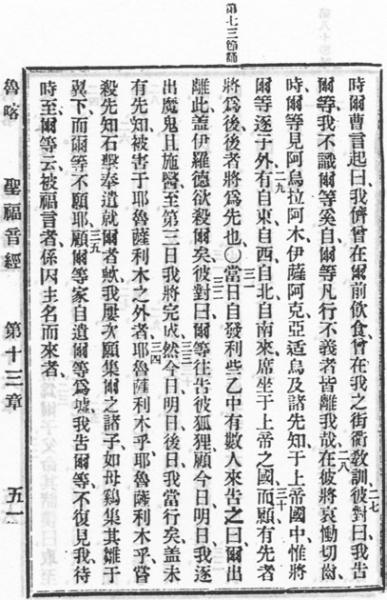 第七三節誦
時爾曹言起曰我儕曾在爾前飲食曾在我之街衢教訓彼對曰我告
二七
爾等我不識爾等奚自爾等凡行不義者皆離我哉在彼將哀慟切齒
二八
時爾等見阿烏拉阿木伊薩阿克亞适烏及諸先知于上帝國中惟將
爾等逐于外有自東自西自北自南來席坐于上帝之國而顧有先者
二九
三十
將爲後後者將爲先也〇當日自發利些乙中有數人來告之曰爾出
三一
離此盖伊羅德欲殺爾矣彼對曰爾等往告彼狐狸顧今日明日我逐
三二
出魔鬼且施醫至第三日我將完成然今日明日後日我當行矣盖未
三三
有先知被害于耶魯薩利木之外者耶魯薩利木乎耶魯薩利木乎嘗
三四
殺先知石擊奉遣就爾者歟我屢次願集爾之諸子如母鷄集其雛于
翼下而爾等不願耶顧爾等家自遺爾等爲墟我告爾等不復見我待
三五
時至爾等云被福言者係因主名而來者
魯喀 聖福音經 第十三章 五一